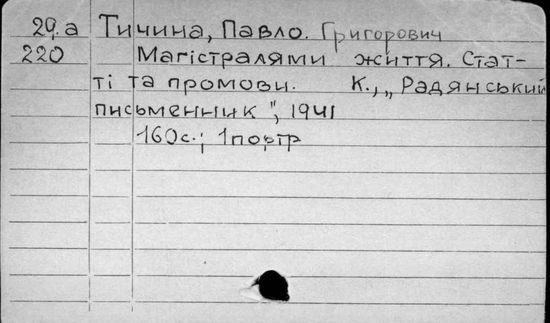 29.а Тичина, Павло. Григорович
220 Магістралями життя. Стат-
ті та промови. К., „Радянський
письменник", 1941
160с.; 1портр